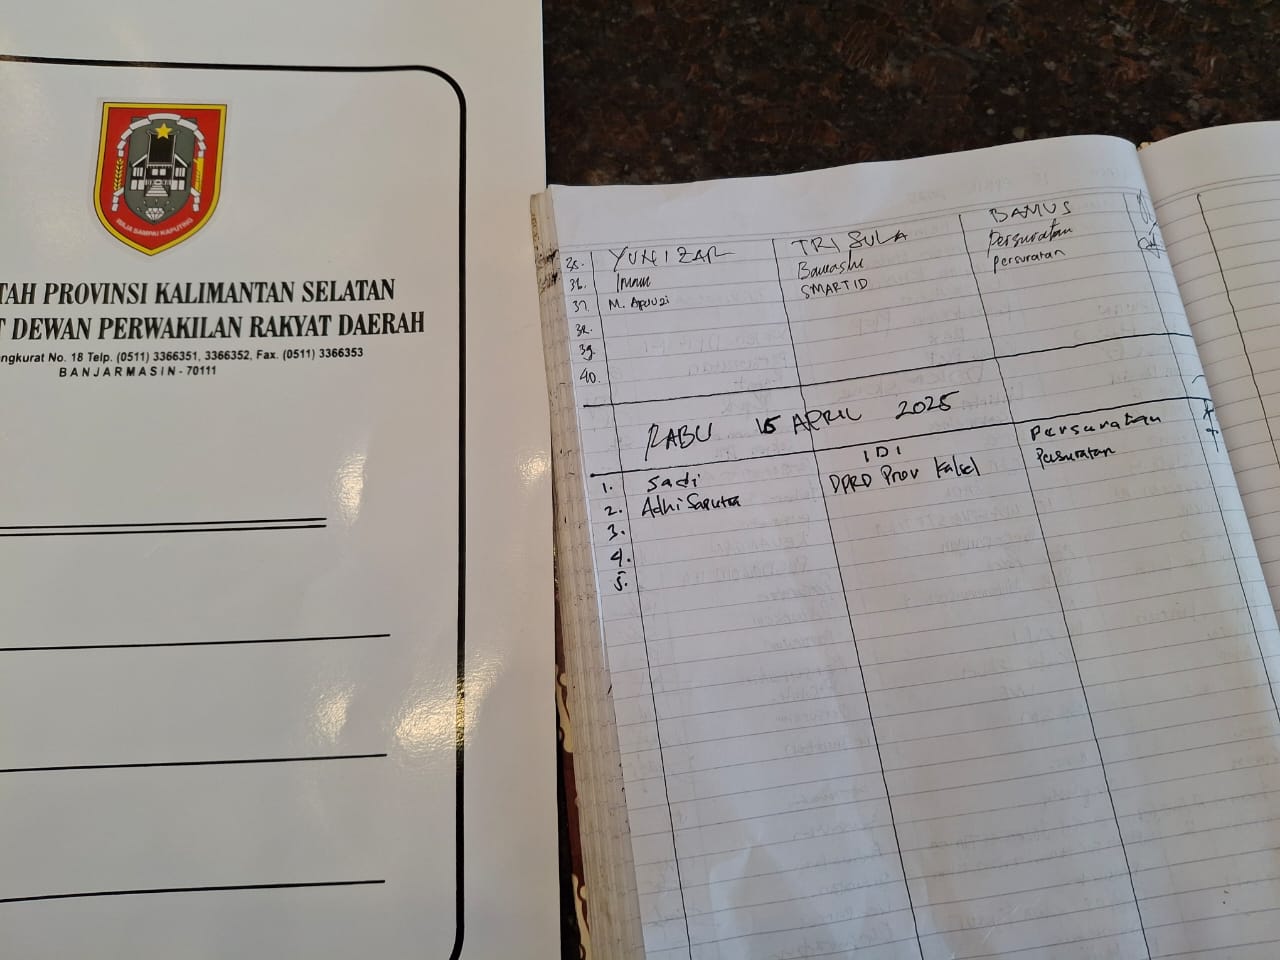 RAJA SAMPAI KAPUTING
TAH PROVINSI KALIMANTAN SELATAN
T DEWAN PERWAKILAN RAKYAT DAERAH
ngkurat No. 18 Telp. (0511) 3366351, 3366352, Fax. (0511) 3366353
BANJARMASIN - 70111
35. YUNIZAR TRISULA BAMUS
36. Imam Bawaslu Persuratan
37. M. SMARTID Persuratan
38.
39.
40.
RABU 15 APRIL 2025
1. Sadi IDI Persuratan
2. Adhi Saputra DPRD Prov Kalsel Persuratan
3.
4.
5.